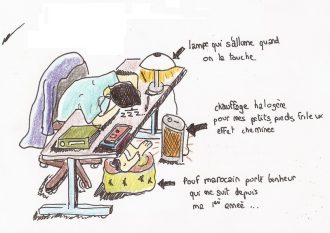 lampe qui s'allume quand
on la touche.
zzz
chauffage halogère
pour mes petits pieds frileux
effet cheminée
Pouf marocain porte bonheur
qui me suit depuis
ma 1ère année ...